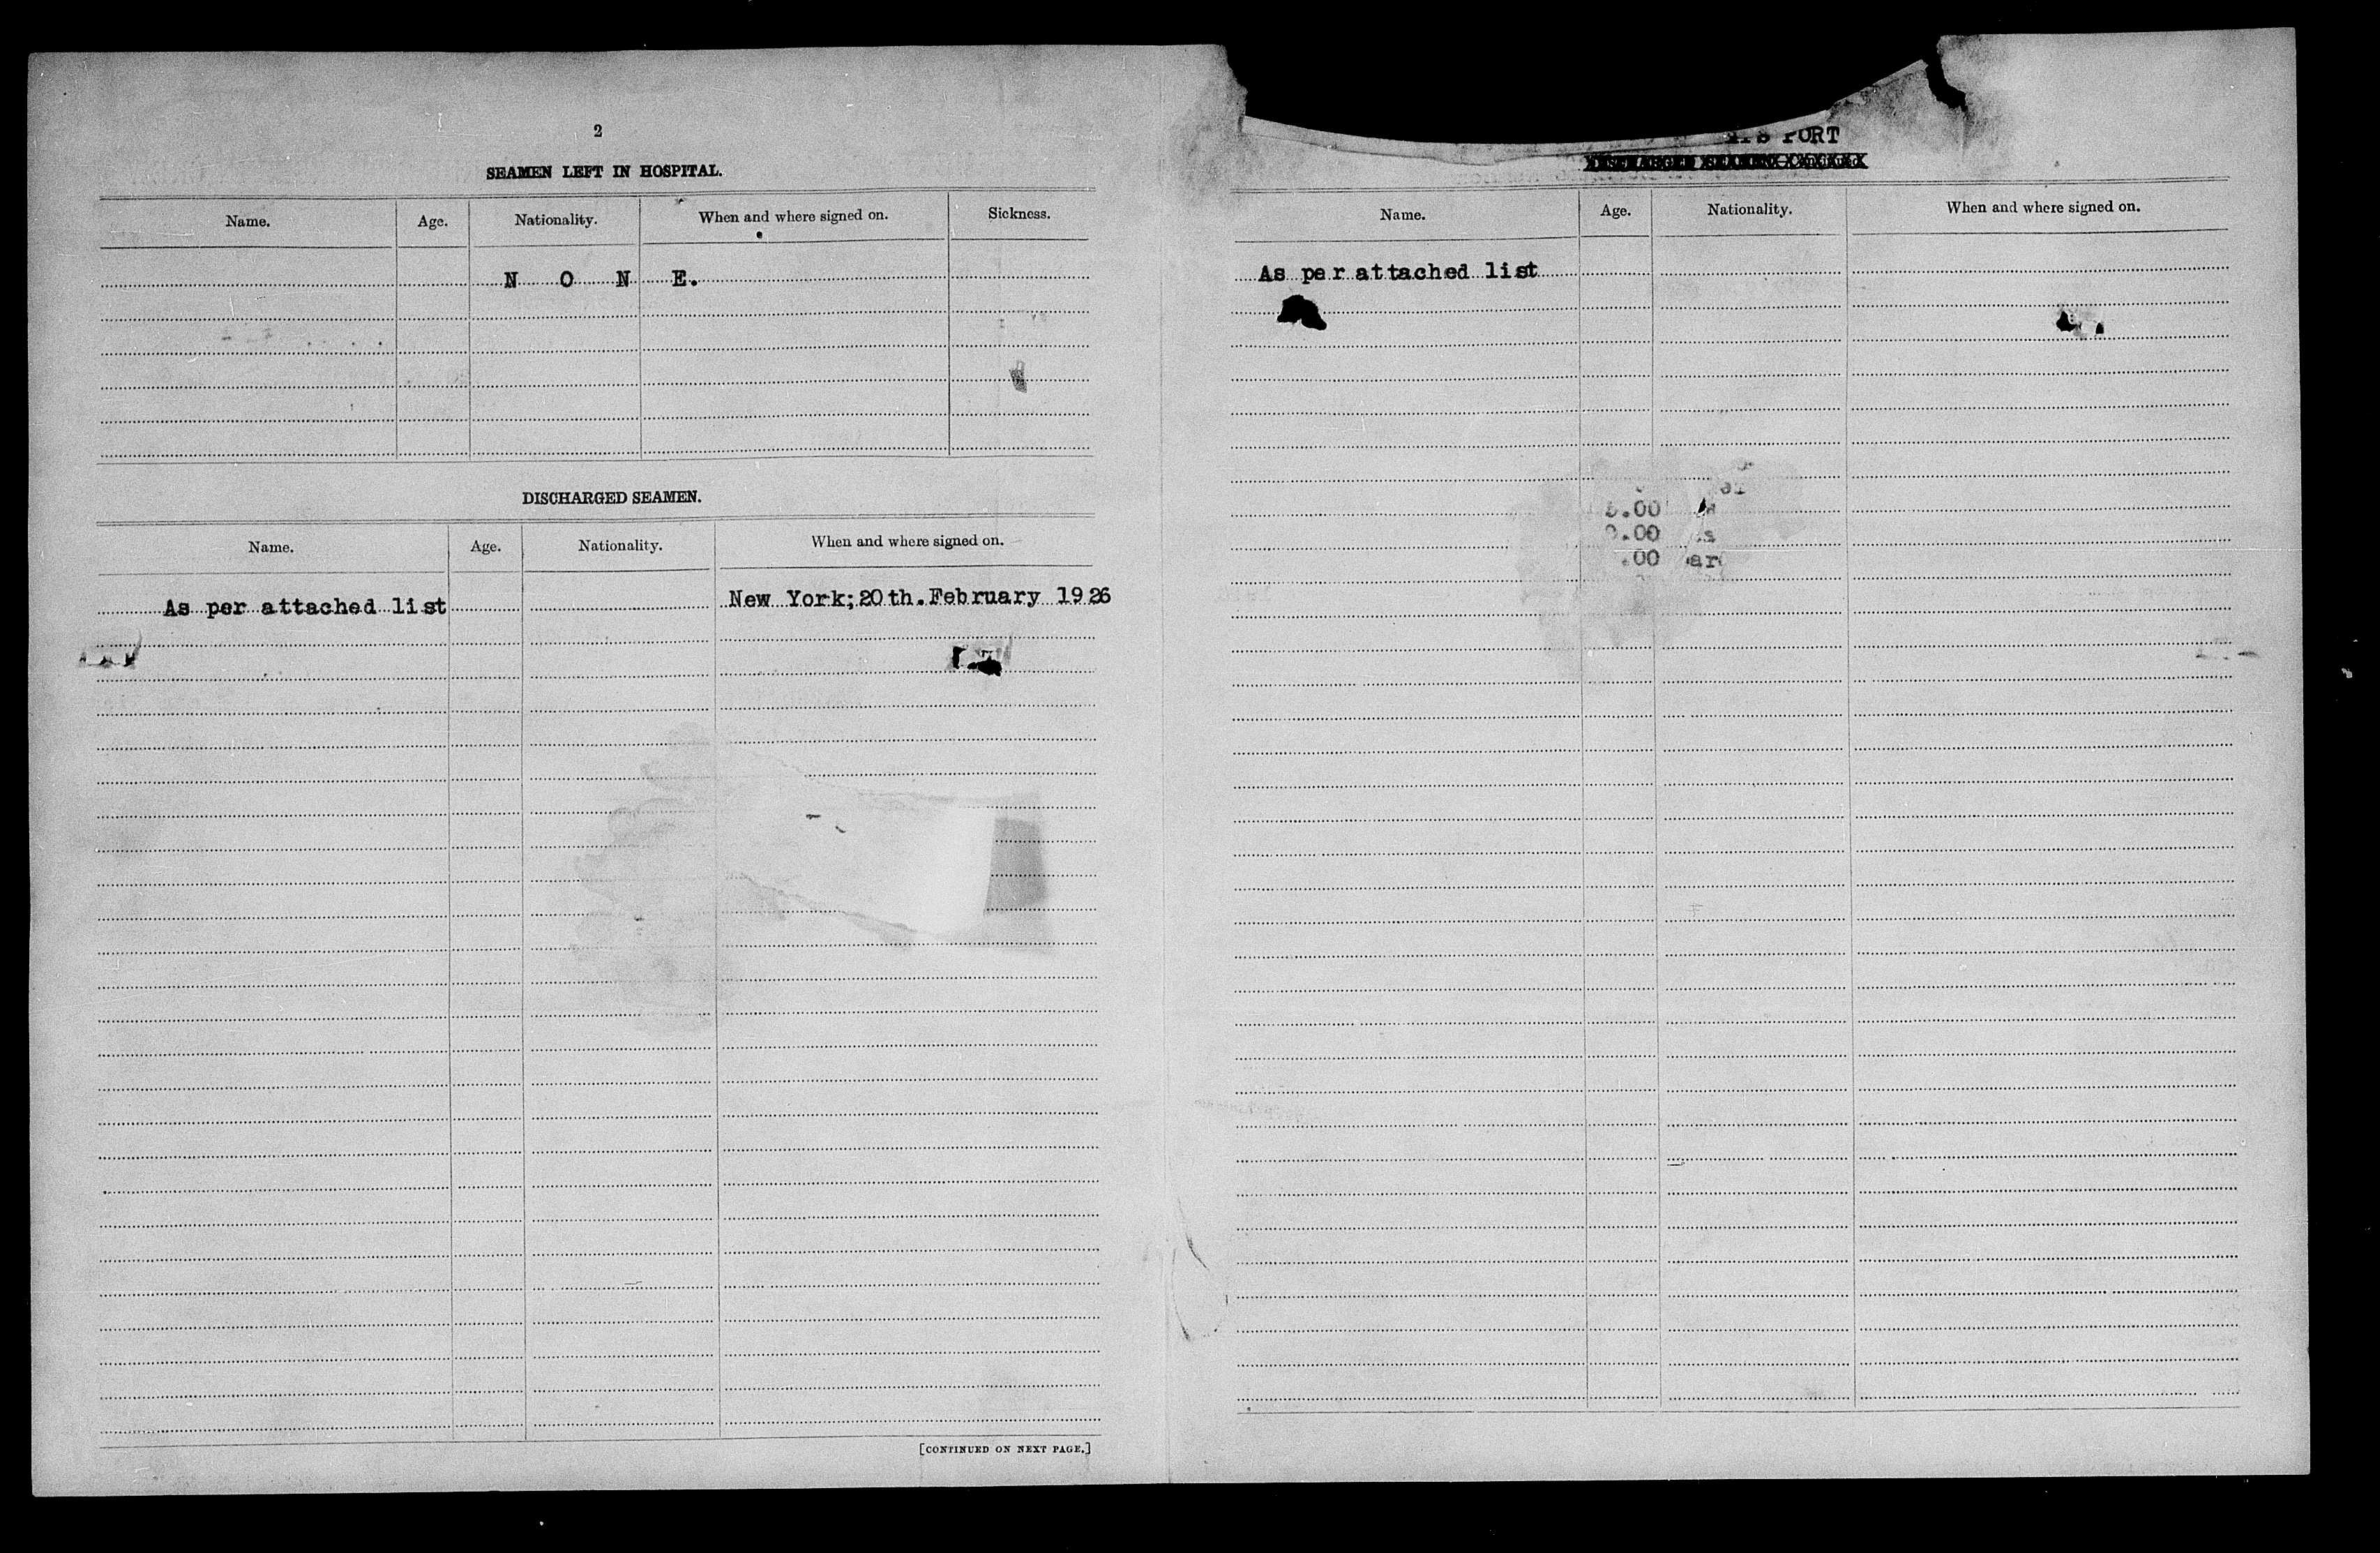 2
SEAMEN LEFT IN HOSPITAL.
Name. Age. Nationality. When and where signed on. Sickness.
N O N E.
DISCHARGED SEAMEN.
Name. Age. Nationality. When and where signed on.
As per attached list New York;20th.February 1926
[CONTINUED ON NEXT PAGE.]
PORT
DISCHARGED SEAMEN
Name. Age. Nationality. When and where signed on.
As per attached list
.00
.00
.00